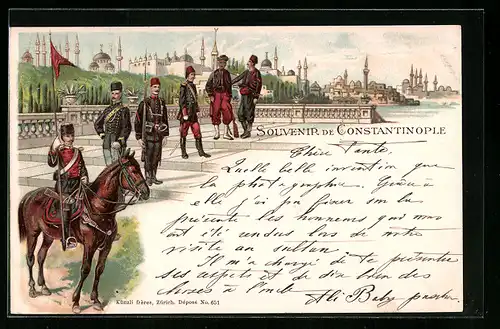 SOUVENIR DE CONSTANTINOPLE
Chère Tante,
Quelle belle invention que
la photographie. Grâce à
elle j'ai pu fixer sur la
présente les honneurs qui nous
ont été rendus lors de notre
visite au sultan.
Il m'a chargé de te présenter
ses respects et de dire bien des
choses à l'oncle
Ali Baby pascha
Künzli frères, Zürich. Déposé No. 651